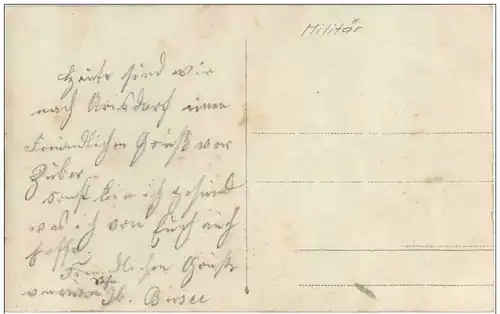 Militär
Heute sind wir
nach Arisdorf einen
Freundlichen Gruß von
sonst bin ich gesund
was ich von Euch auch
hoffe
Freundlichen Gruß